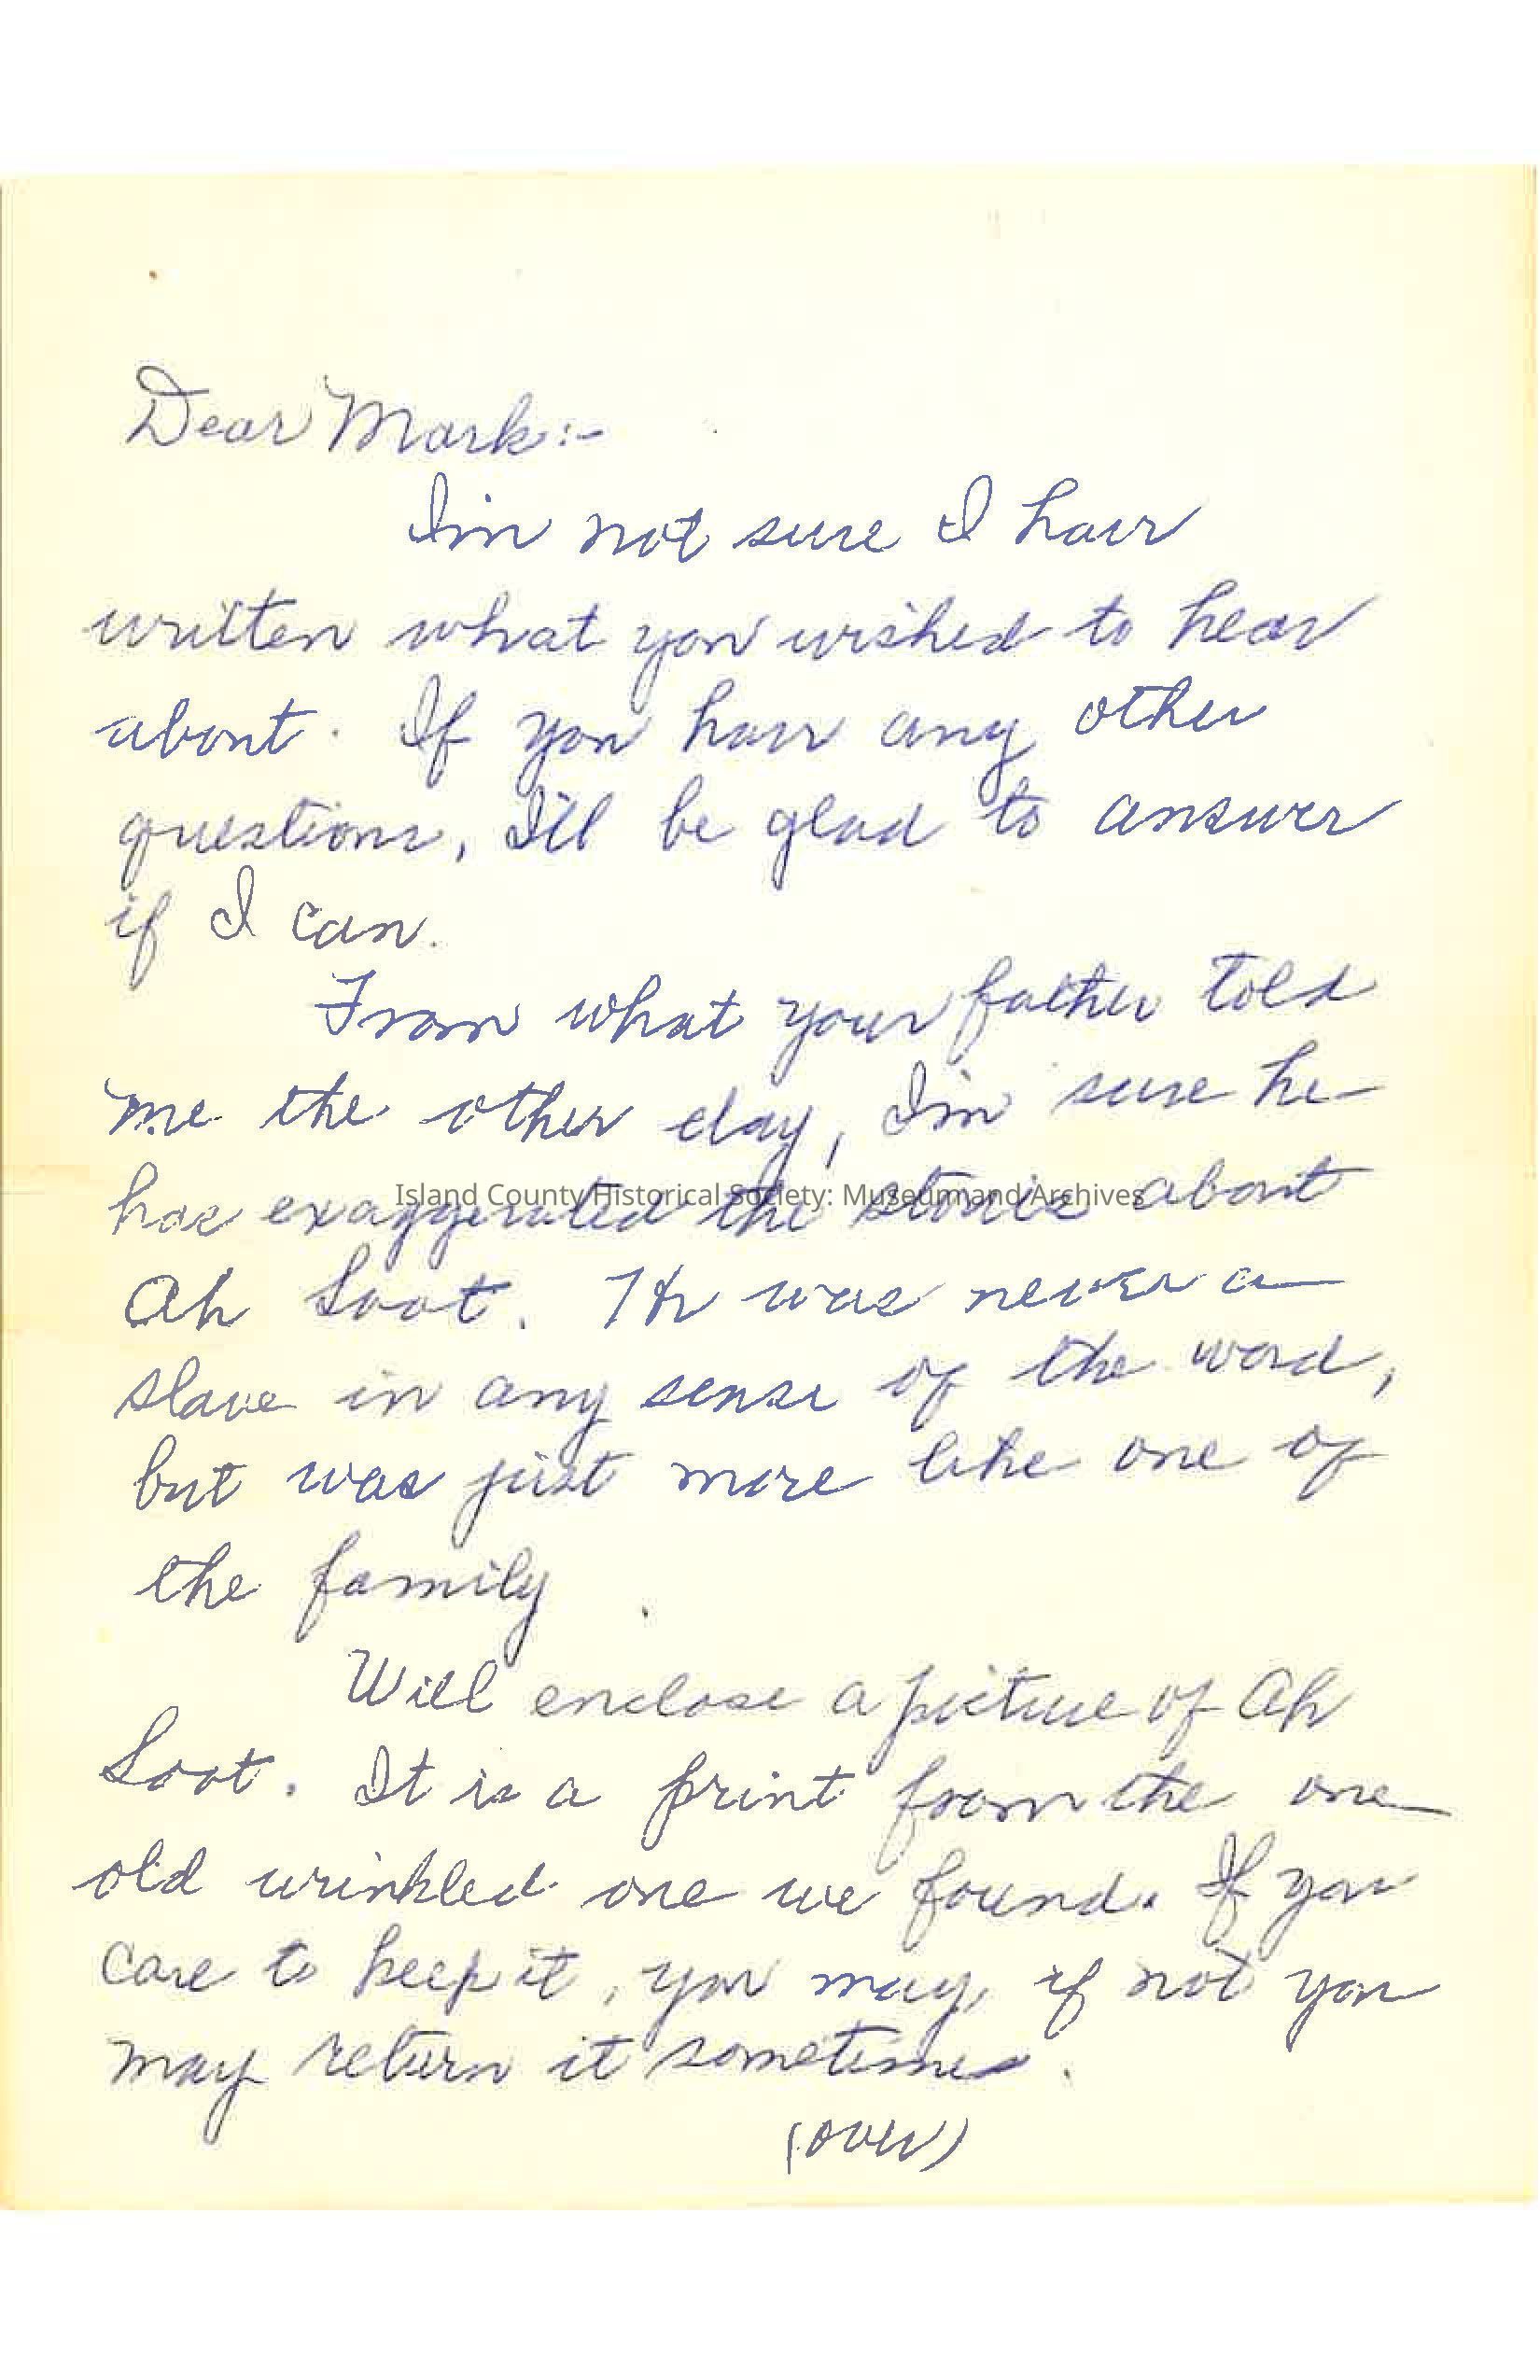 Dear Mark:-
I'm not sure I have
written what you wished to hear
about. If you have any other
questions, I'll be glad to answer
if I can.
From what your father told
me the other day, I'm sure he
has exaggerated the stories about
Island County Historical Society: Museumnand Archives
Ah Soot. He was never a
slave in any sense of the word,
but was just more like one of
the family.
Will enclose a picture of Ah
Soot. It is a print from the one
old wrinkled one we found. If you
care to keep it, you may, if not you
may return it sometime.
(over)